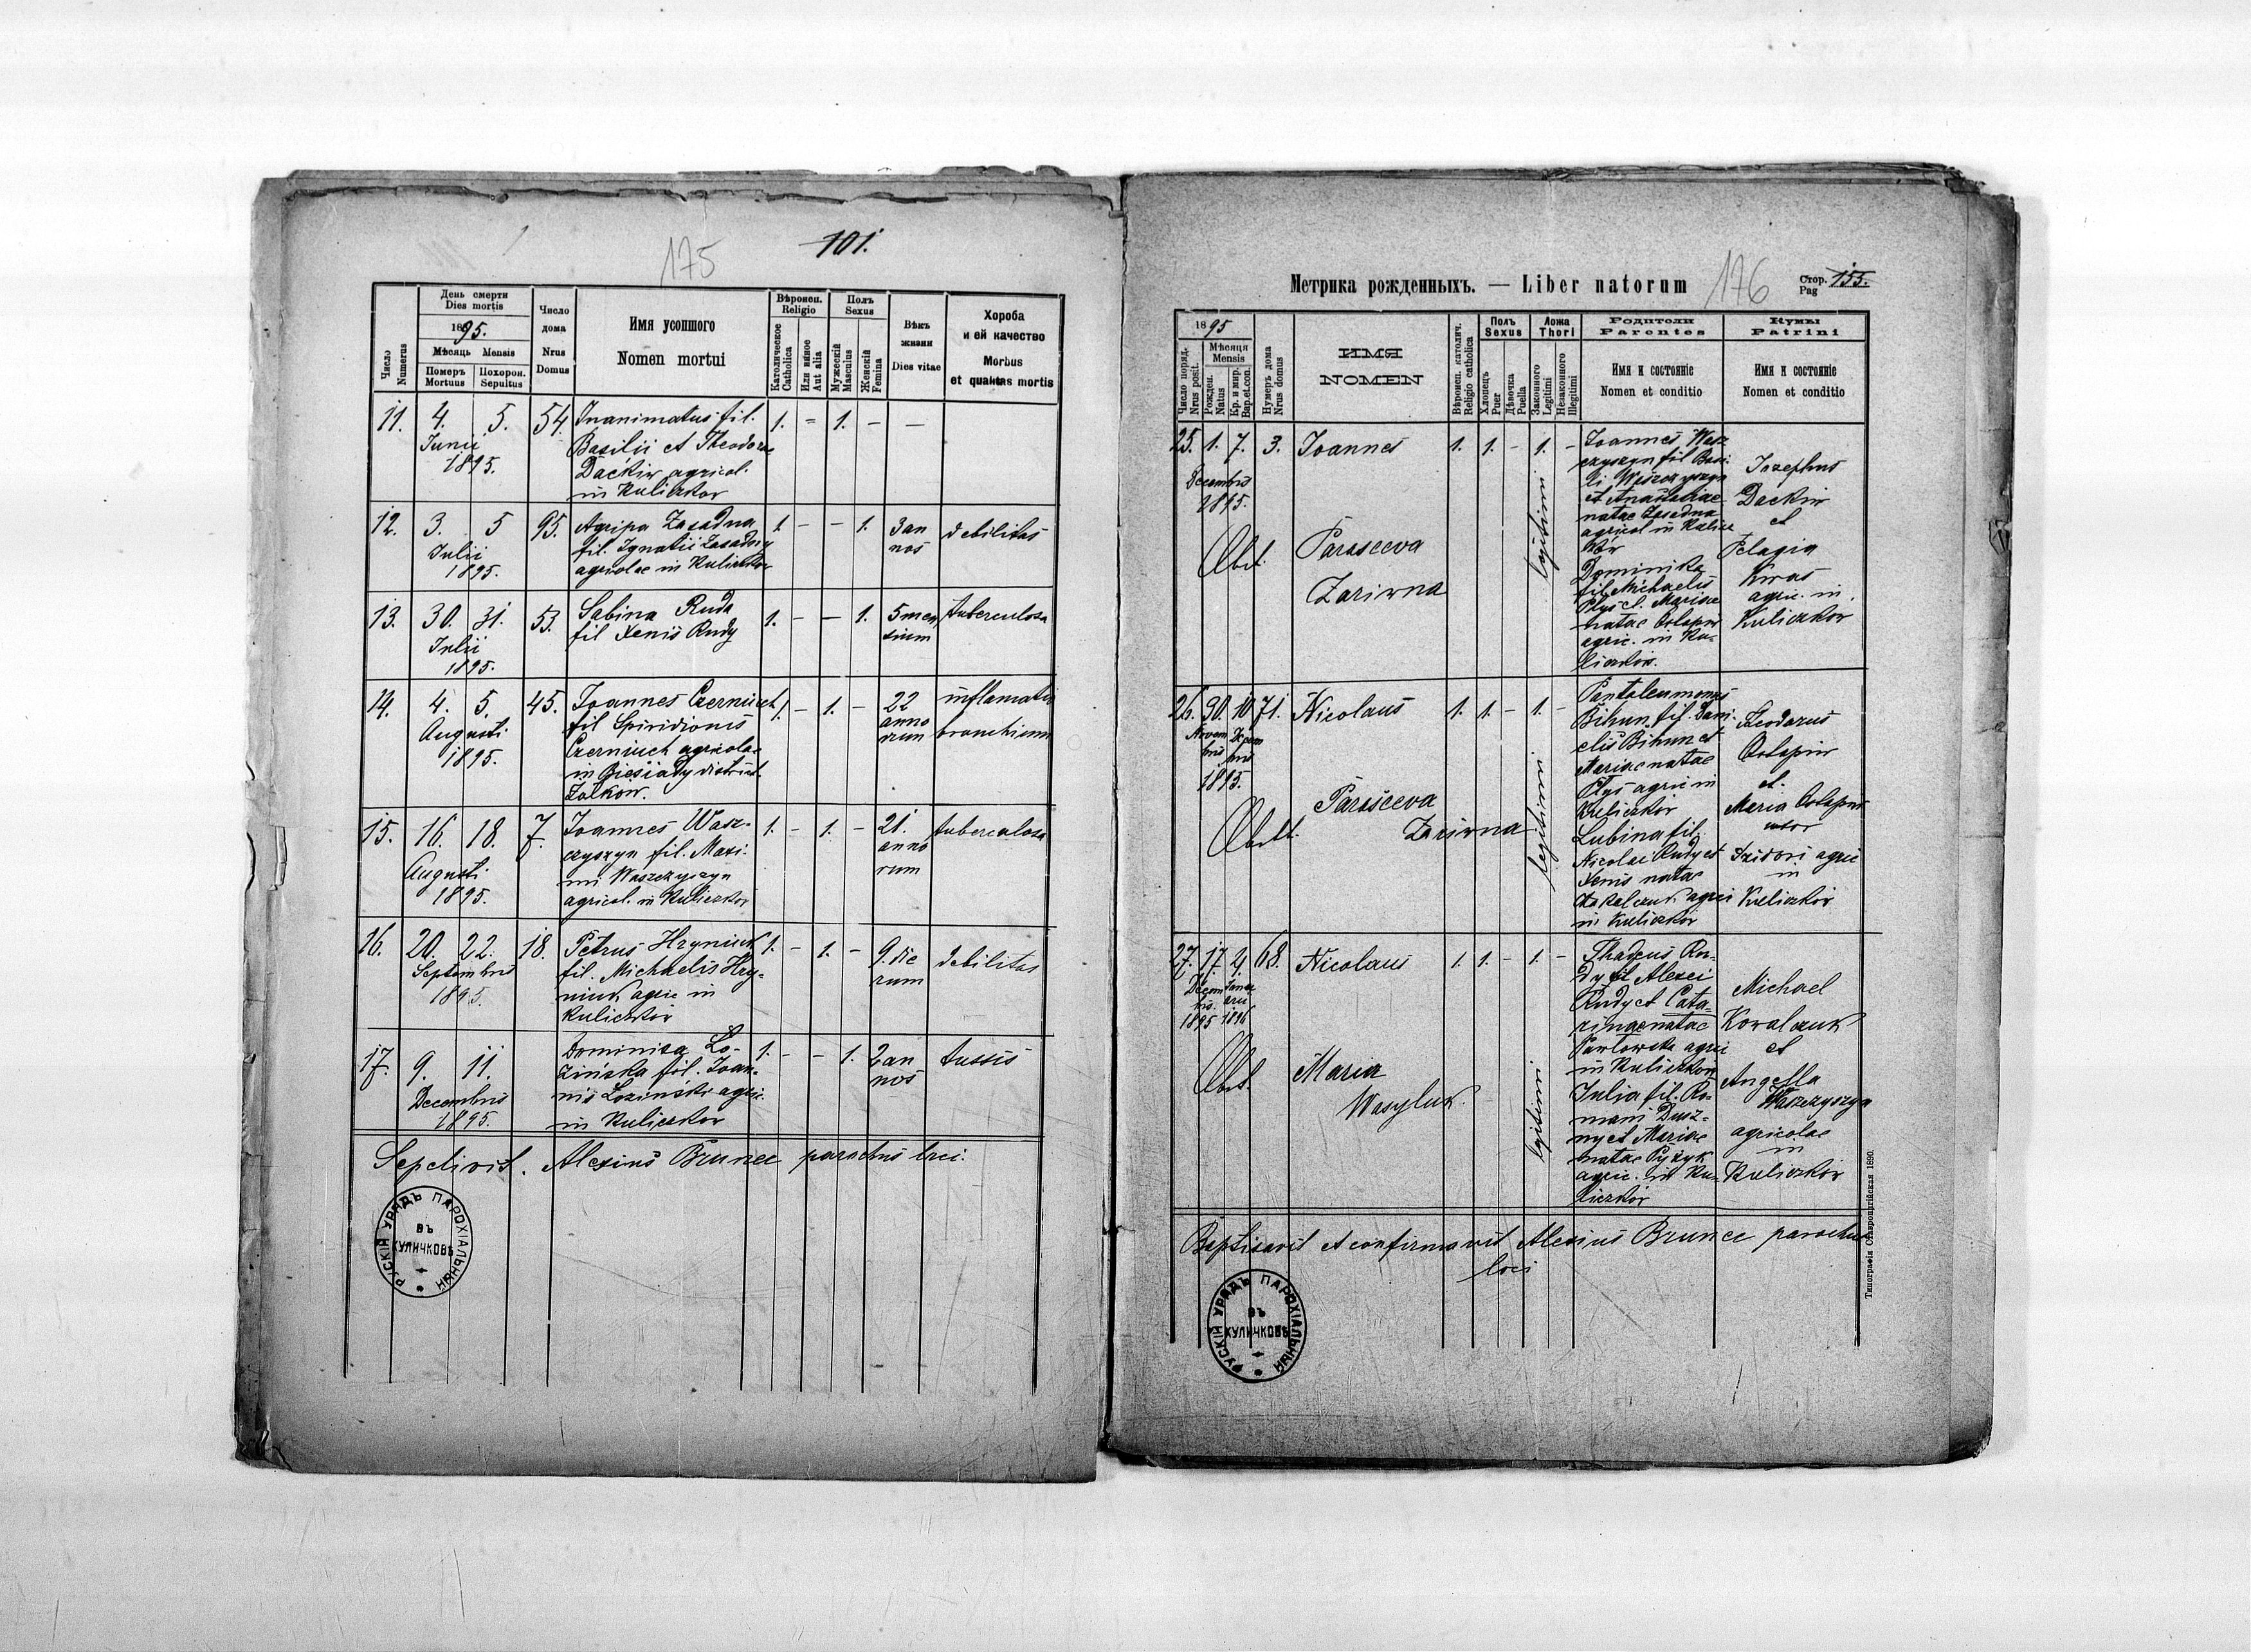 175
101.
День смерти
Dies mortis
1895.
Мѣсяць Mensis
Померъ
Mortuus
Похорон.
Sepultus
Число
Numerus
Число
дома
Nrus
Domus
Имя усопшого
Nomen mortui
Вѣроисп.
Religio
Католическое
Catholica
Или инное
Aut alia
Полъ
Sexus
Мужескій
Masculus
Женскій
Femina
Вѣкъ
жизни
Dies vitae
Хороба
и ей качество
Morbus
et qualitas mortis
11. 4. 5. 54. Inanimatus fil. 1. = 1. – —
Junii Basilii et Theodorae
1895. Dackiw agricol.
in Kuliczkow
12. 3. 5 95. Agripa Zasadna 1. – – 1. 3 an debilitas
Julii fil. Ignatii Zasadny nos
1895. agricolae in Kuliczkow
13. 30. 31. 53. Sabina Ruda 1. – – 1. 5 men tuberculosa
Julii fil Xenis Rudy sium
1895.
14. 4. 5. 45. Joannes Czerniuch 1. – 1. – 22 inflamatio
Augusti fil Spiridionis anno bronchium
1895. Czerniuch agricolae rum
in Biesiady district.
Żółkow.
15. 16. 18. 7. Joannes Wasz- 1. – 1. – 21. tuberculosa
Augusti czyszyn fil. Maxi- anno
1895. mi Waszczyszyn rum
agricol. in Kuliczkow
16. 20. 22. 18. Petrus Hryniuk 1. – 1. – 9. die debilitas
Septembris fil. Michaelis Hry- rum
1895. niuk agric in
Kuliczkow
17. 9. 11. Dominica Ło- 1. – – 1. 2 an tussis
Decembris zińska fil. Joan- nos
1895. nis Łoziński agric.
in Kuliczkow
Sepelivit. Alexius Brunec parochus loci.
РУСКІЙ УРЯДЪ ПАРОХІАЛЬНЫЙ
ВЪ
КУЛИЧКОВѢ
Метрика рожденныхъ. — Liber natorum
176
Стор.
Pag
155.
1895
Число поряд.
Nrus posit.
Мѣсяця
Mensis
Рожден.
Natus
Кр. и мир.
Bap. et con.
Нумеръ дома
Nrus domus
ИМЯ
NOMEN
Вѣроисп. католич.
Religio catholica
Полъ
Sexus
Хлопецъ
Puer
Дѣвочка
Puella
Ложа
Thori
Законного
Legitimi
Незаконного
Illegitimi
Родители
Parentes
Имя и состояніе
Nomen et conditio
Кумы
Patrini
Имя и состояніе
Nomen et conditio
25. 1. 7. 3. Joannes 1. 1. – 1. –
Decembris
1895.
Obst. Parasceva
Zariwna
legitimi
Joannes Wasz
czyszyn fil Basi-
li Waszczyszyn
et Anastasiae
natae Zasadna
agricol in Kulicz
kow
Dominika
fil. Michaelis
Plys et Mariae
natae Ostapiw
agric. in Ku-
liczkow.
Josephus
Dackiw
et
Pelagia
Kwas
agric. in
Kuliczkow
26. 30. 10 71. Nicolaus 1. 1. – 1. –
Novem Decem
bris bris
1895.
Obst. Parasceva
Zariwna
legitimi
Pantaleumonus
Bihun fil. Dani-
elis Bihun et
Mariae natae
Plys agric in
Kuliczkow
Lubina fil.
Nicolai Rudy et
Xenis natae
agric
in Kuliczkow
Theodorus
Ostapiw
et.
Maria Ostapiw
uxor
Izidori agric
in
Kuliczkow
27. 17. 4. 68. Nicolaus 1. 1. – 1. –
Decem Janu
bris. arii
1895 1896
Obst. Maria
Wasyluk.
legitimi
Thadeus Ru-
dy fil Alexei
Rudy et Cata-
rinae natae
Pawlowska agric
in Kuliczkow
Julia fil. Ro-
mani Dusz-
ny et Mariae
natae Pyzyk
agric. in Ku-
liczkow
Michael
Kowalczuk
et
Angella
Waszczyszyn
agricolae
in
Kuliczkow
Baptisavit et confirmavit Alexius Brunec parochus
loci
РУСКІЙ УРЯДЪ ПАРОХІАЛЬНЫЙ
ВЪ
КУЛИЧКОВѢ
Типографія Ставропигійская 1890.